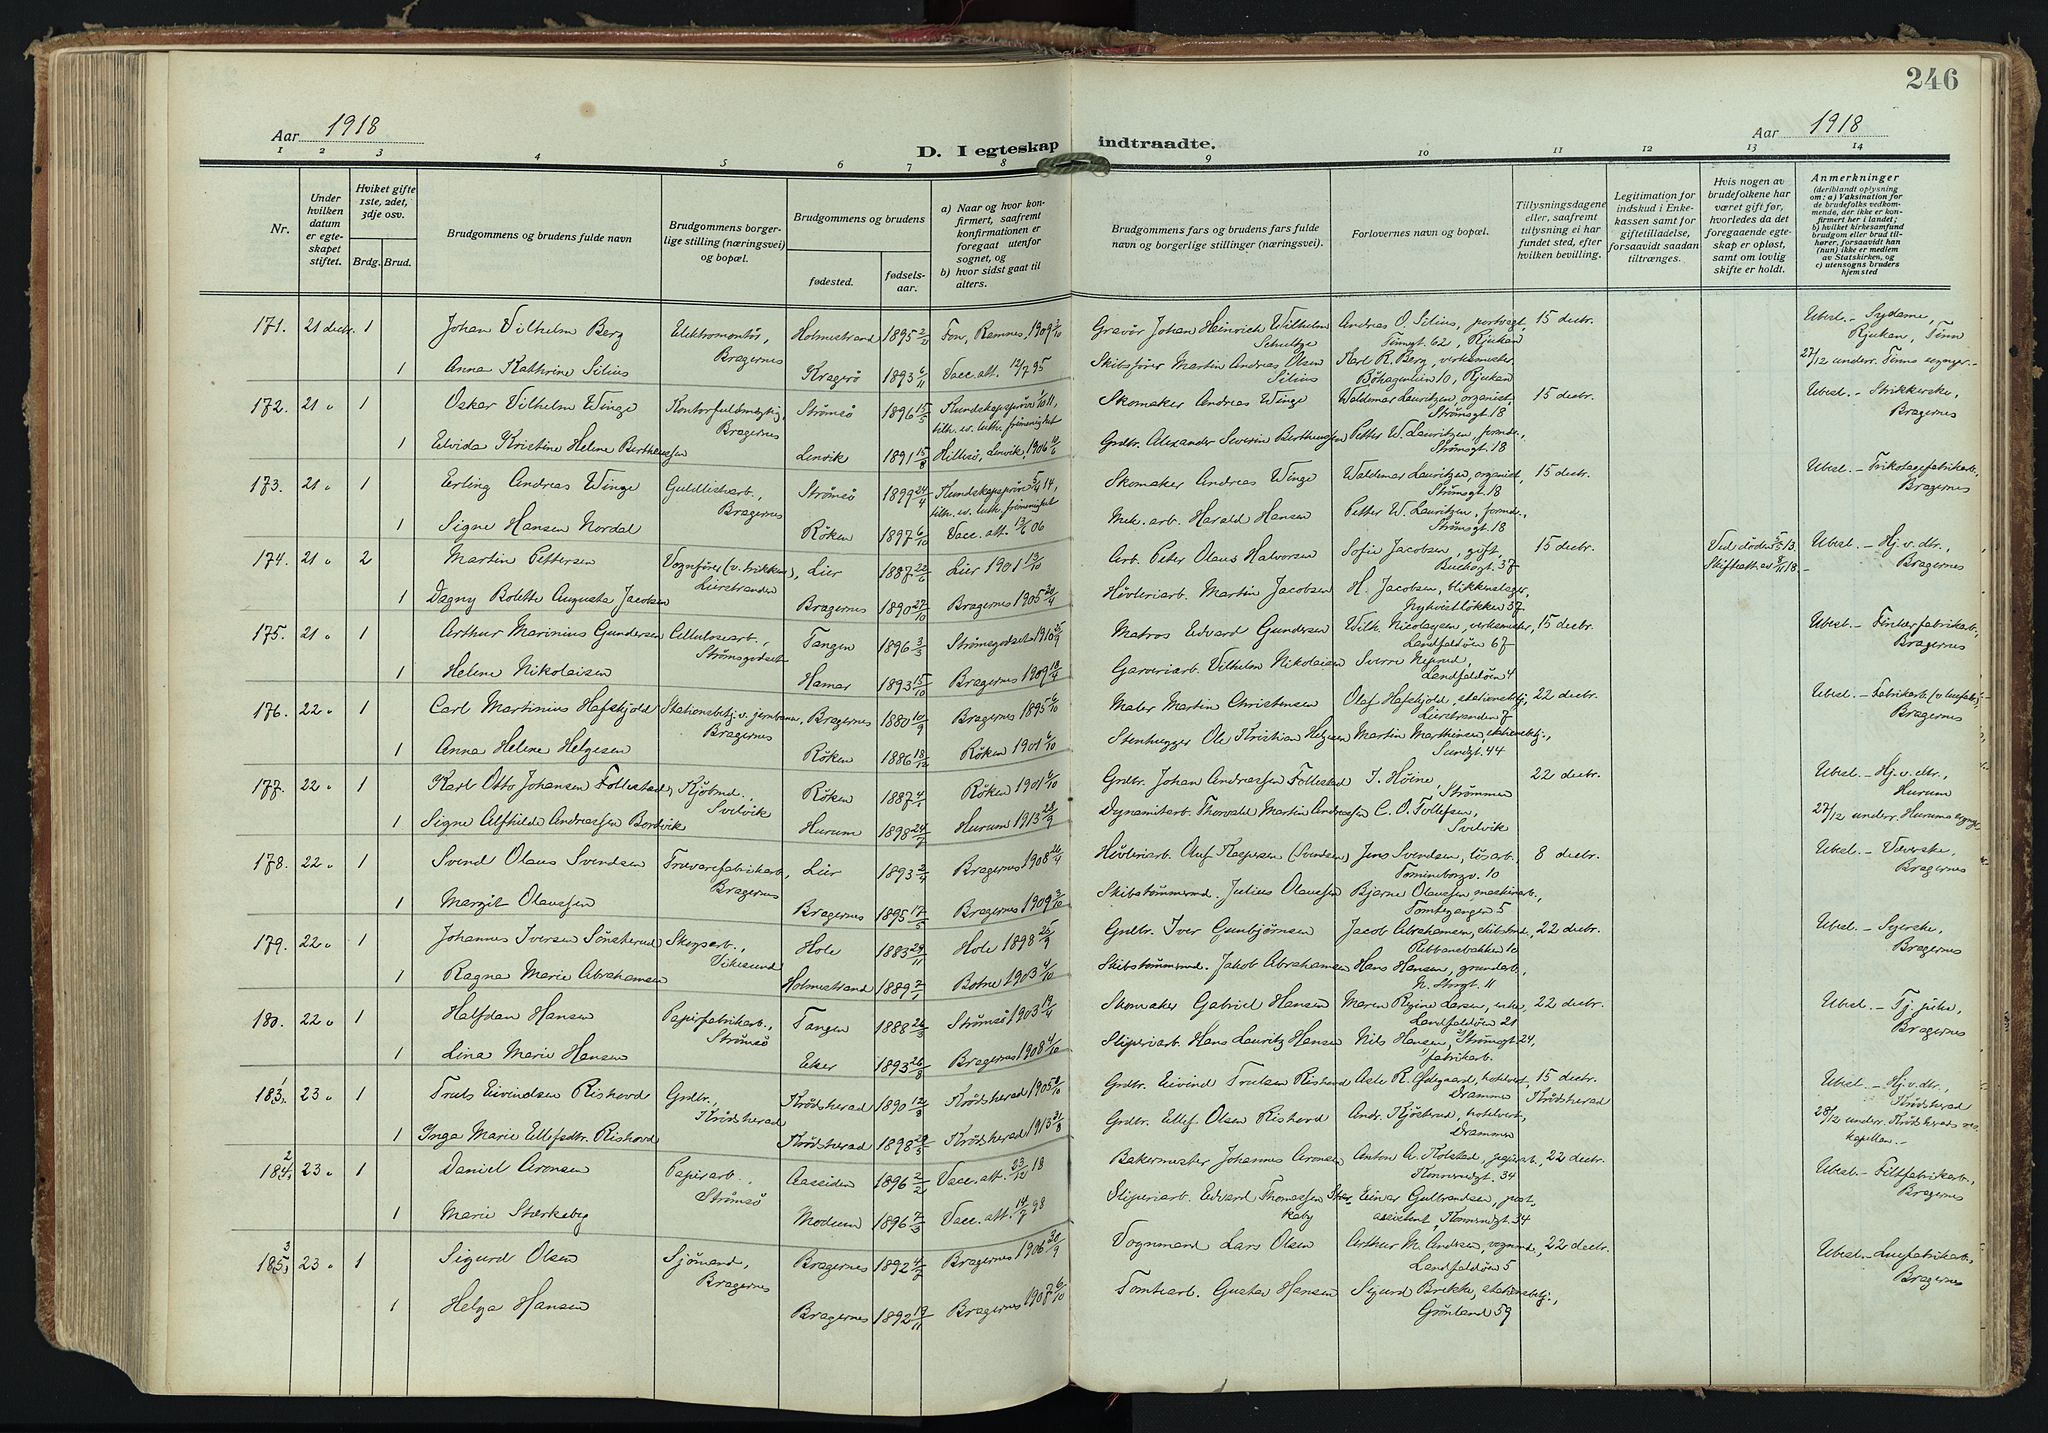 246
Aar 1918
D. I egteskap indtraadte.
Aar 1918
1 2 3 4 5 6 7 8 9 10 11 12 13 14
Nr.
Under hvilken datum er egteskapet stiftet.
Hviket gifte 1ste, 2det, 3dje osv.
Brdg. Brud.
Brudgommens og brudens fulde navn
Brudgommens borgerlige stilling (næringsvei) og bopæl.
Brudgommens og brudens
fødested.
fødselsaar.
a) Naar og hvor konfirmert, saafremt konfirmationen er foregaat utenfor sognet, og
b) hvor sidst gaat til alters.
Brudgommens fars og brudens fars fulde navn og borgerlige stillinger (næringsvei).
Forlovernes navn og bopæl.
Tillysningsdagene eller, saafremt tillysning ei har fundet sted, efter hvilken bevilling.
Legitimation for indskud i Enkekassen samt for giftetilladelse, forsaavidt saadan tiltrænges.
Hvis nogen av brudefolkene har været gift før, hvorledes da det foregaaende egteskap er opløst, samt om lovlig skifte er holdt.
Anmerkninger
(deriblandt oplysning om: a) Vaksination for de brudefolks vedkommende, der ikke er konfirmert her i landet; b) hvilket kirkesamfund brudgom eller brud tilhører, forsaavidt han (hun) ikke er medlem av Statskirken, og c) utensogns bruders hjemsted
171. 21 decbr. 1 Johan Vilhelm Berg Elektromontør, Bragernes Holmestrand 1895 2/11 Fon, Ramnes, 1909 3/10 Gravør Johan Heinrich Wilhelm Schultze Andreas O. Silius, portvagt, Tinngt 62, Rjukan 15 decbr. Ubesl. - Sydame, Rjukan, Tinn
1 Anna Kathrine Silius Kragerø 1893 6/11 Vacc. att. 12/7 95 Skibsfører Martin Andreas Olsen Silius Karl R. Berg, verksmester Bøhagenlien 10, Rjukan 27/12 underr. Tinns sogngr.
172. 21 " 1 Oskar Vilhelm Winge Kontorfuldmægtig, Bragernes Strømsø 1896 15/5 Kundskapsprøve 1/10 11, tilh. ev. luth. frimenighet Skomaker Andreas Winge Valdemar Lauritzen, organist, Strømsgt. 18 15 decbr. Ubesl. - Strikkerske, Bragernes
1 Elvida Kristine Helene Bertheussen Lenvik 1891 15/8 Hillesø, Lenvik, 1906 10/6 Grdbr. Alexander Severin Bertheussen Petter W. Lauritzen, formd., Strømsgt. 18
173. 21 " 1 Erling Andreas Winge Guldlistarb., Bragernes Strømsø 1899 24/4 Kundskapsprøve 5/4 14, tilh. ev. luth. frimenighet Skomaker Andreas Winge Waldemar Lauritzen, organist, Strømsgt. 18 15 decbr. Ubesl. - Trikotagefabrikarb., Bragernes
1 Signe Hansen Nordal Røken 1897 6/10 Vacc. att. 13/6 06 Mek. arb. Harald Hansen Petter W. Lauritzen, formd., Strømsgt. 18
174. 21 " 2 Martin Pettersen Vognfører (v. trikken), Lierstranden Lier 1887 22/6 Lier 1901 13/10 Arb. Peter Olaus Halvorsen Sofie Jacobsen, gift, Buchsgt. 37 15 decbr. Ved døden 5/5 13. Skifteatt. av 8/11 18. Ubesl. - Hj. v. dtr., Bragernes
1 Dagny Bolette Augusta Jacobsen Bragernes 1890 27/10 Bragernes 1905 30/4 Høvleriarb. Martin Jacobsen H. Jacobsen, blikkenslager, Nykvistløkken 57
175. 21 " 1 Arthur Marinius Gundersen Cellulosearb., Strømsgodset Tangen 1896 3/3 Strømsgodset 1910 25/9 Matros Edvard Gundersen Wilh. Nicolaysen, verksmester, Landfaldøen 67 15 decbr. Ubesl. - Fintærfabrikarb., Bragernes
1 Helene Nikolaisen Hamar 1893 15/10 Bragernes 1909 18/4 Garveriarb. Vilhelm Nikolaisen Sverre Neprud, Landfaldøen 4
176. 22 " 1 Carl Martinius Hafskjold Stationsbetj. v. jernbanen, Bragernes Bragernes 1880 10/9 Bragernes 1895 6/10 Maler Martin Christensen Olaf Hafskjold, stationsbetj., Lierstranden 7 22 decbr. Ubesl. - Fabrikarb. Bragernes
1 Anna Helene Helgesen Røken 1886 18/12 Røken 1901 6/10 Stenhugger Ole Kristian Helgesen Martin Marthinsen, stationsbetj., Sundgt. 44
177. 22 " 1 Karl Otto Johansen Follestad, Kjøbmd., Svelvik Røken 1887 4/1 Røken 1901 6/10 Grdbr. Johan Andreassen Follestad J. Høine, Strømmen 22 decbr. Ubesl. - Hj. v. dtr., Hurum
1 Signe Alfhilde Andreassen Bordvik Hurum 1898 24/7 Hurum 1913 28/9 Dynamitarb. Thorvald Martin Andreassen C. O. Tollefsen, Svelvik 27/12 underr. Hurums sogngr.
178. 22 " 1 Svend Olaus Svendsen Trævarefabrikarb., Bragernes Lier 1893 3/4 Bragernes 1908 26/4 Høvleriarb. Oluf Kaspersen (Svendsen) Jens Svendsen, løsarb., Tømmeborgv. 10 8 decbr. Ubesl. - Væverske, Bragernes
1 Margit Olaussen Bragernes 1895 17/5 Bragernes 1909 3/10 Skibstømmermd. Julius Olaussen Bjarne Olaussen, maskinarb., Tomtegangen 5
179. 22 " 1 Johannes Iversen Sønsterud Skogsarb., Vikesund Hole 1883 29/11 Hole 1898 25/9 Grdbr. Iver Gunbjørnsen Jacob Abrahamsen, skibstmd., Ribbansbakken 10 22 decbr. Ubesl. - Syerske, Bragernes
1 Ragna Marie Abrahamsen Holmestrand 1889 2/1 Botne 1903 4/10 Skibstømmermd. Jakob Abrahamsen Hans Hansen, grundarb., N. Storgt. 11
180. 22 " 1 Halfdan Hansen Papirfabrikarb., Strømsø Tangen 1888 26/3 Strømsø 1903 19/4 Skomaker Gabriel Hansen Maren Regine Larsen, enke, Landfaldøen 21 22 decbr. Ubesl. - Tj. pike, Bragernes
1 Lina Marie Hansen Eker 1893 26/8 Bragernes 1908 4/10 Sliperiarb. Hans Lauritz Hansen Nils Hansen, Strømsgt. 24, fabrikarb.
183. 1 23 " 1 Truls Eivindsen Rishovd Grdbr., Krødsherad Krødsherad 1890 12/3 Krødsherad 1905 8/10 Grdbr. Eivind Trulsen Rishovd Asle R. Ødegaard, hotelvert, Drammen 15 decbr. Krødsherad Ubesl. - Hj. v. dtr., Krødsherad
1 Inga Marie Ellefsdtr. Rishovd Krødsherad 1898 29/5 Krødsherad 1913 31/8 Grdbr. Ellef Olsen Rishovd Andr. Kjøstrud, hotelvert, Drammen 28/12 underr. Krødsherads res. kapellan. -
184. 2 23 " 1 Daniel Aronsen Papirarb., Strømsø Aassiden 1896 2/2 Vacc. att. 23/12 18 Bakermester Johannes Aronsen Anton A. Holstad, papirarb., Konnerudgt. 34 22 decbr. Ubesl. - Filtfabrikarb., Bragernes
1 Marie Stærkeby Modum 1896 7/3 Vacc. att. 14/7 98 Sliperiarb. Edvard Thomassen Stærkeby Einar Gulbrandsen, postassistent, Konnerudgt. 34
185. 3 23 " 1 Sigurd Olsen Sjømand, Bragernes Bragernes 1892 4/2 Bragernes 1906 30/9 Vognmand Lars Olsen Arthur M. Andersen, vognmd., Landfaldøen 5 22 decbr. Ubesl. - Luefabrikarb., Bragernes
1 Helga Hansen Bragernes 1892 19/11 Bragernes 1907 6/10 Tomtearb. Gustav Hansen Sigurd Brekke, stationsbetj., Grønland 59